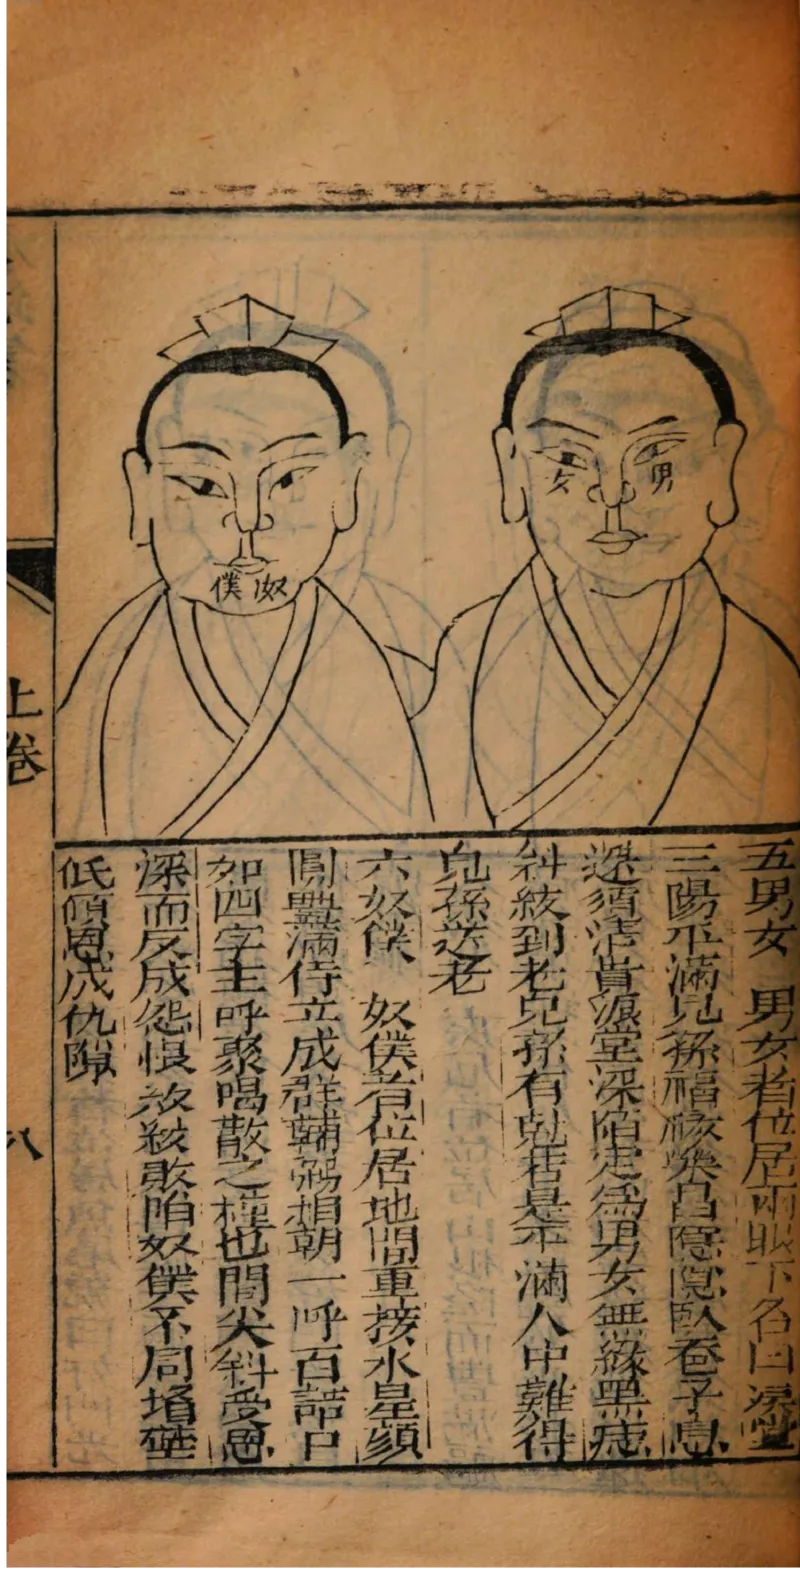 男
女
奴僕
五男女 男女者位居兩眼下名曰淚堂
三陽平滿兒孫福祿榮昌隱隱臥蚕子息
還須清貴淚堂深陷定為男女無緣黑痣
斜紋到老兒孫有尅若是平滿人中難得
兒孫送老
六奴僕 奴僕者位居地閣重接水星頦
圓豐滿侍立成群輔弼相朝一呼百諾口
如四字主呼聚喝散之權也閣尖斜受恩
深而反成怨恨紋紋敗陷奴僕不同墻壁
低傾恩成仇隙
上卷
八